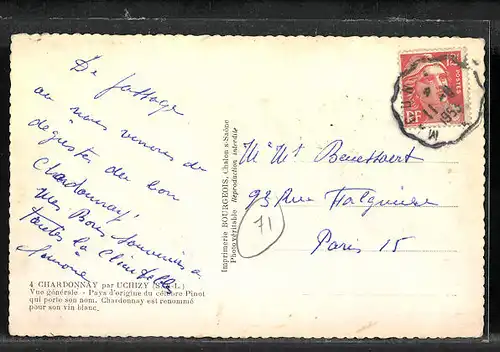 De passage
où nous venons de
déguster du bon
Chardonnay,
mes Bons souvenirs à
toute la
Simone
4 CHARDONNAY par UCHIZY (S.-&-L.)
Vue générale - Pays d'origine du célèbre Pinot
qui porte son nom. Chardonnay est renommé
pour son vin blanc.
Imprimerie BOURGEOIS, Chalon s-Saône
Photovéritable Reproduction interdite
POSTES
RF
Mr Mt
93 Rue Falguière
Paris 15
71